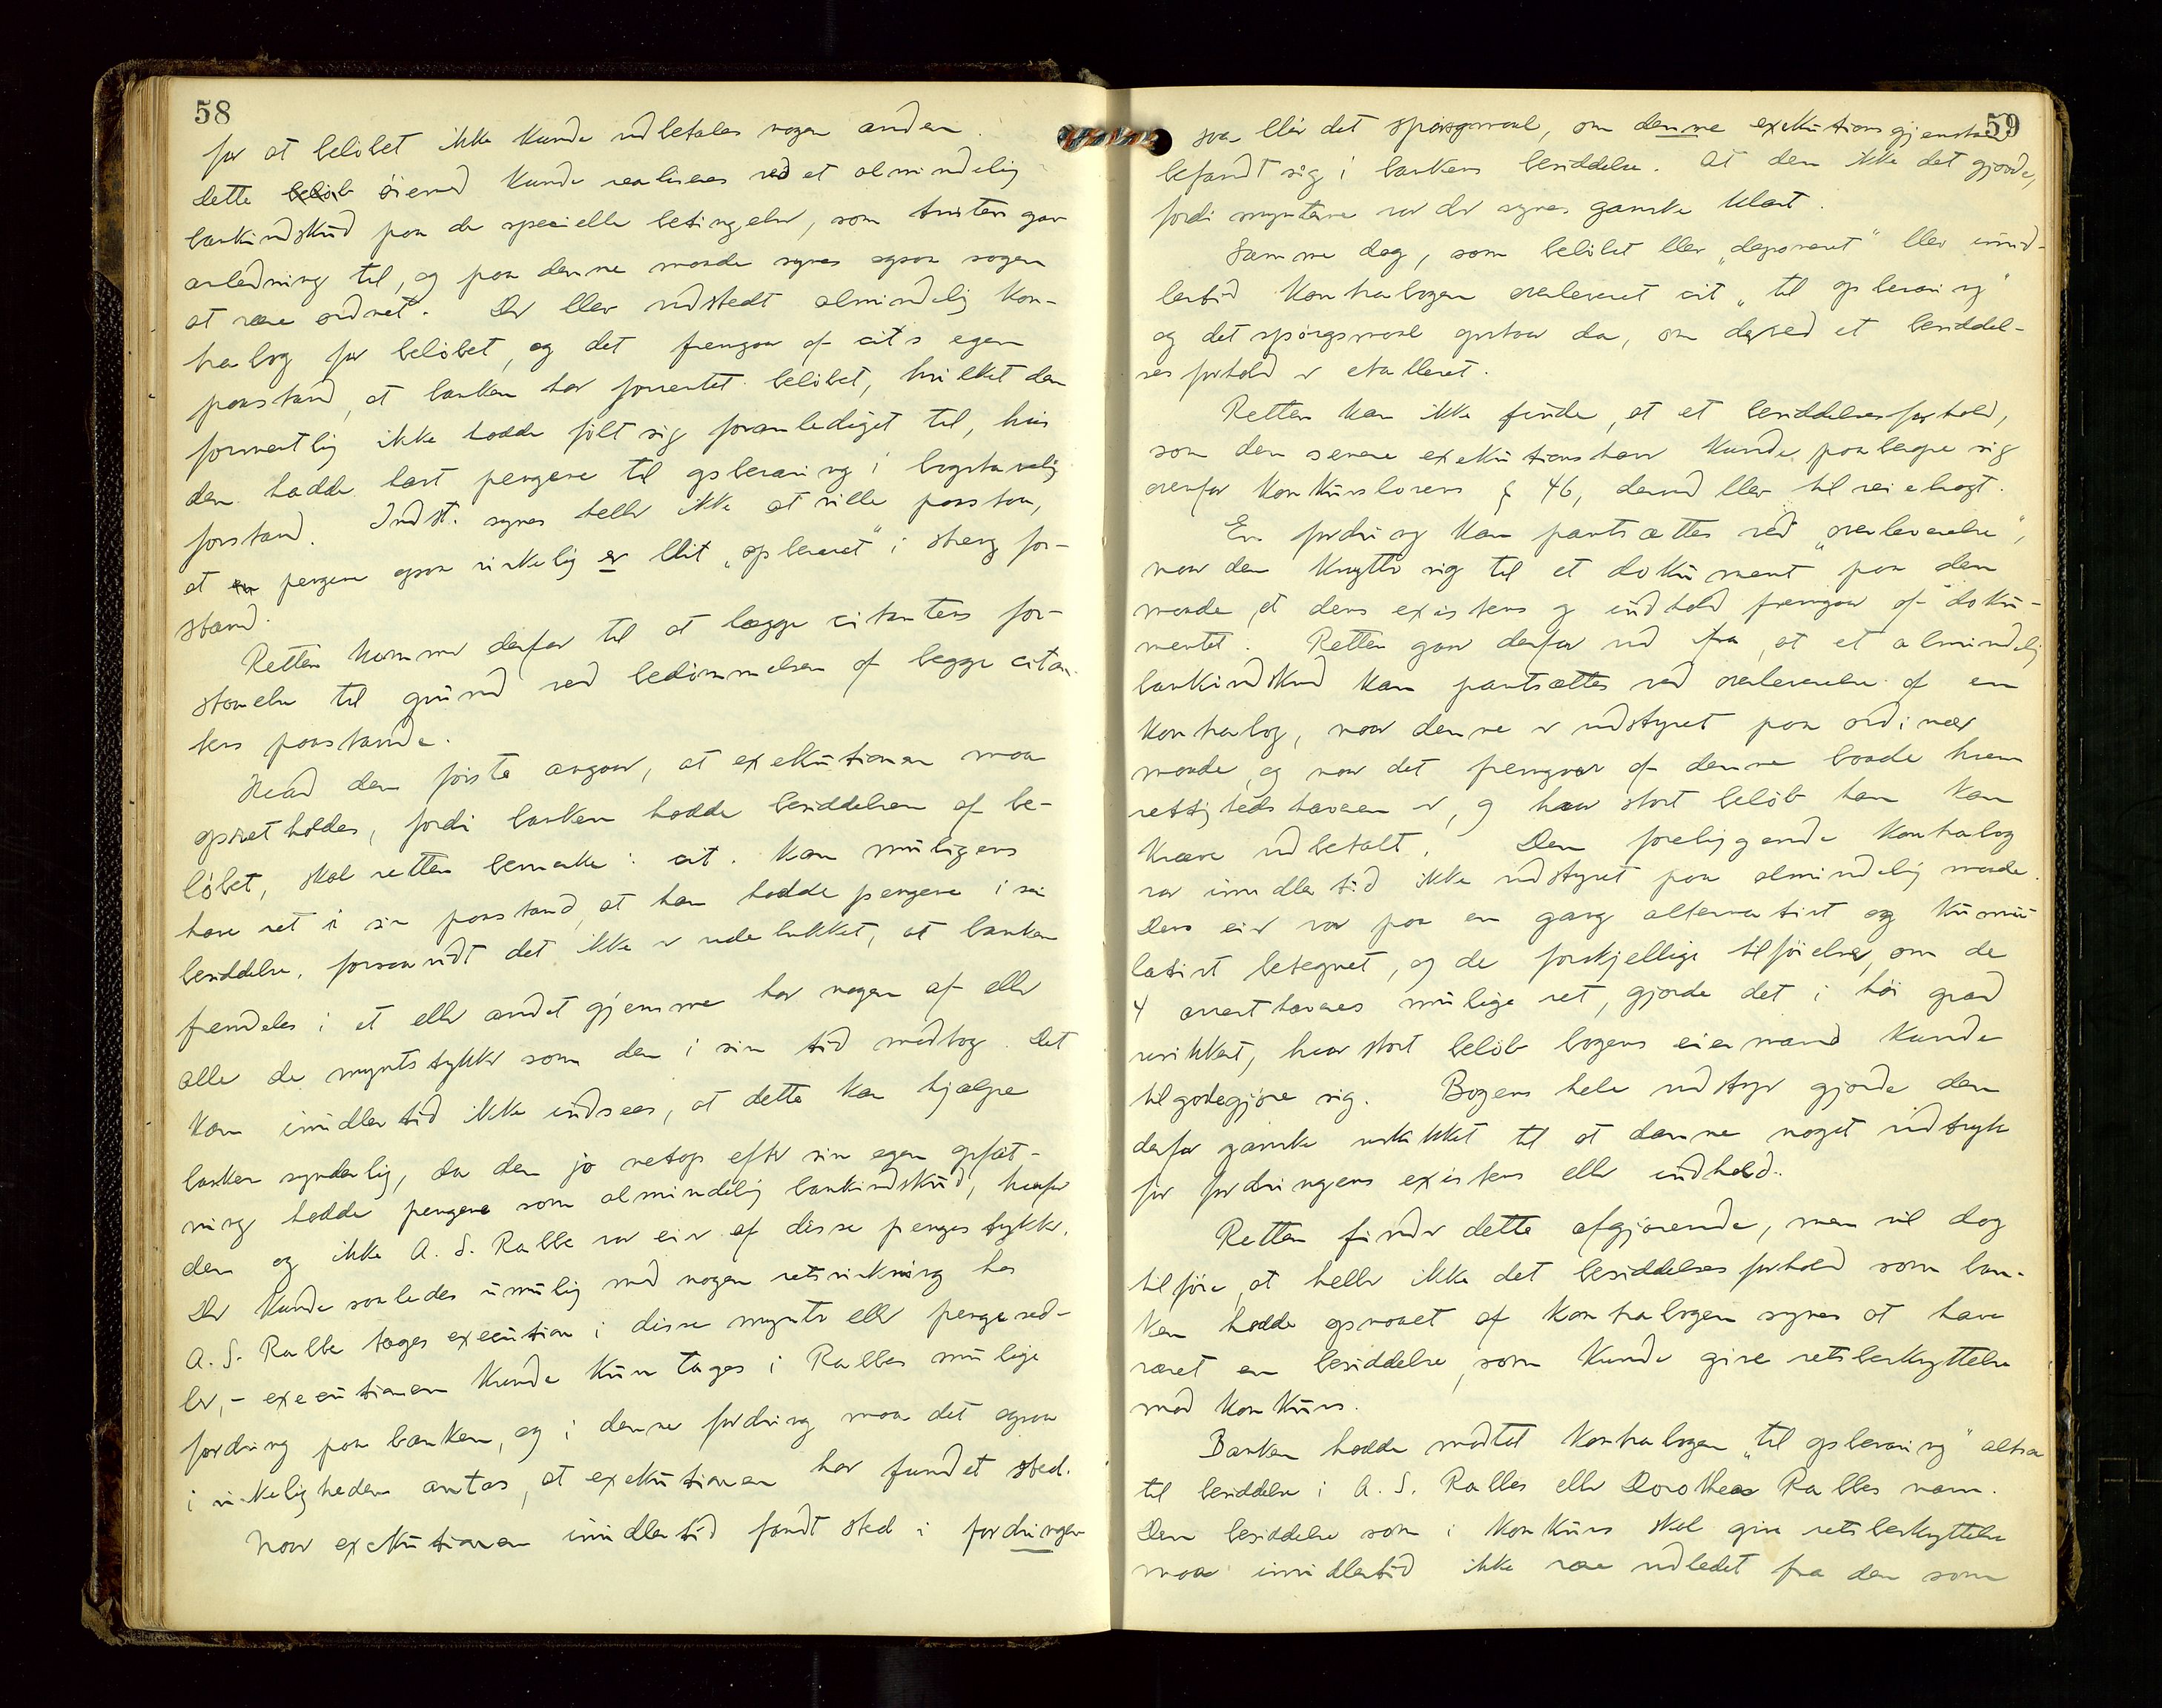 58
for at beløbet ikke kunde udbetales nogen anden.
Dette beløb øiemed kunde realiseres ved et almindelig
bankindskud paa de specielle betingelser, som tvisten gav
anledning til, og paa denne maade synes ogsaa sagen
at være ordnet. Der blev udstedt almindelig kon-
trabog for beløbet, og det fremgaar af cit's egen
paastand, at banken har forrentet beløbet, hvilket den
formentlig ikke hadde følt sig foranlediget til, hvis
den hadde havt pengene til opbevaring i bogstavelig
forstand. Indst. synes heller ikke at ville paastaa,
at pengene ogsaa virkelig er blit "opbevaret" i streng for-
stand.
Retten kommer derfor til at lægge citantens for-
staaelse til grund ved bedømmelsen af begge citan-
tens paastande.
Hvad den første angaar, at exekutionen maa
opretholdes, fordi banken hadde besiddelsen af be-
løbet, skal retten bemerke: cit. kan muligens
have ret i sin paastand, at han hadde pengene i sin
besiddelse, forsaavidt det ikke er udelukket, at banken
fremdeles i et eller andet gjemme har nogen af eller
alle de myntstykker som den i sin tid modtog. Det
kan imidlertid ikke indsees, at dette kan hjælpe
banken synderlig, da den jo netop efter sin egen opfat-
ning hadde pengene som almindelig bankindskud, hvorfor
den og ikke A. S. Rabbe var eier af disse pengestykker.
Der kunde saaledes umulig med nogen retsvirkning hos
A. S. Rabbe tages execution i disse mynter eller pengesed-
ler, - executionen kunde kun tages i Rabbes mulige
fordring paa banken, og i denne fordring maa det ogsaa
i virkeligheden antas, at exekutionen har fundet sted.
Naar exekutionen imidlertid fandt sted i fordringen
59
saa blir det spørgsmaal, om denne exekutionsgjenstand
befandt sig i bankens besiddelse. At den ikke det gjorde,
fordi mynterne var der synes ganske klart.
Samme dag, som beløbet blev "deponeret" blev imid-
lertid kontrabogen overleveret cit "til opbevaring"
og det spørgsmaal opstaar da, om derved et besiddel-
sesforhold er etableret.
Retten kan ikke finde, at et besiddelsesforhold,
som den senere exekutionshaver kunde paaberope sig
overfor konkurslovens § 46, derved blev tilveiebragt.
En fordring kan pantsættes ved "overleverelse",
naar den knytter sig til et dokument paa den
maade, at dens existens og indhold fremgaar af doku-
mentet. Retten gaar derfor ud fra, at et almindelig
bankindskud kan pantsættes ved overleverelse af en
kontrabog, naar denne er udstyret paa ordinær
maade, og naar det fremgaar af denne baade hvem
rettighedshaveren er, og hvor stort beløb han kan
kræve udbetalt. Den foreliggende kontrabog
var imidlertid ikke udstyret paa almindelig maade.
Dens eier var paa en gang alternativt og kumu-
lativt betegnet, og de forskjellige tilføielser, om de
4 arresthaveres mulige ret, gjorde det i høi grad
usikkert, hvor stort beløb bogens eiermand kunde
tilgodegjøre sig. Bogens hele udstyr gjorde den
derfor ganske uskikket til at danne noget udtryk
for fordringens existens eller indhold.
Retten finder dette afgjørende, men vil dog
tilføie, at heller ikke det besiddelsesforhold som ban-
ken hadde opnaaet af kontrabogen synes at have
været en besiddelse, som kunde give retsbeskyttelse
mod konkurs.
Banken hadde modtat kontrabogen "til opbevaring" altsaa
til besiddelse i A. S. Rabbes eller Dorothea Rabbes navn.
Den besiddelse som i konkurs skal give retsbeskyttelse
maa imidlertid ikke være udledet fra den som